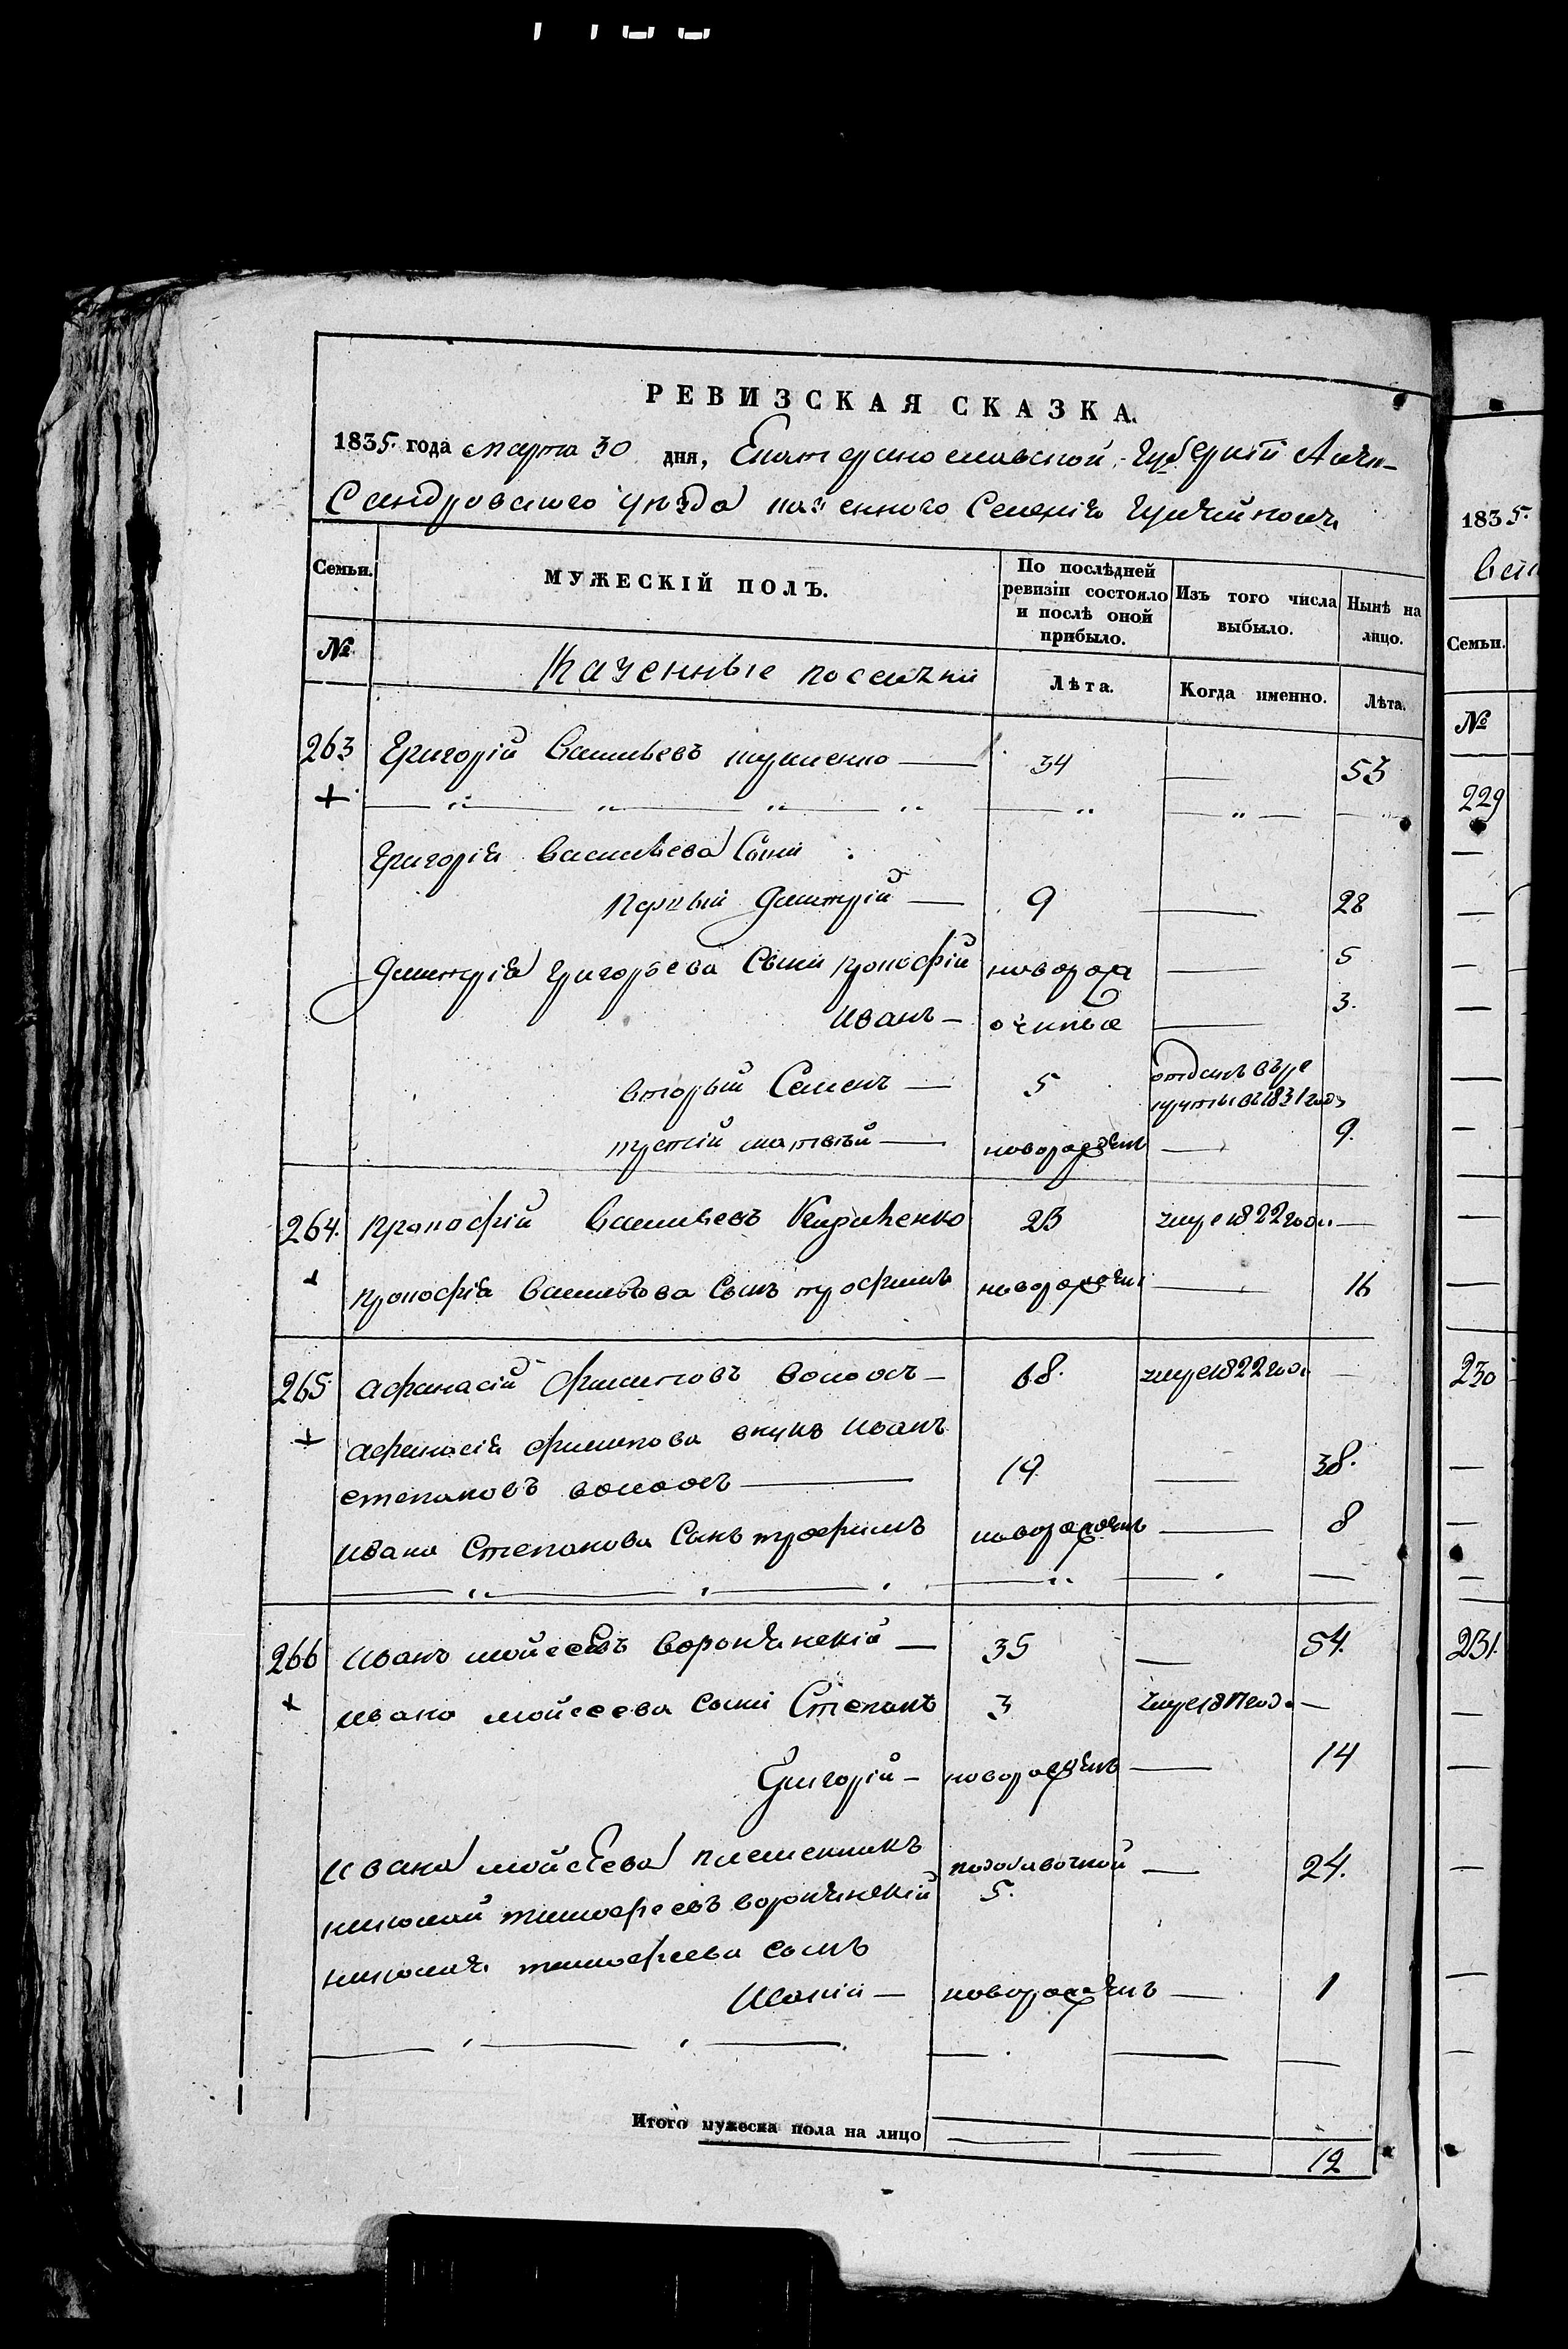 РЕВИЗСКАЯ СКАЗКА.
1835. года марта 30 дня, Екатеринославской Губернiи Алек-
Сандровского уѣзда казенного Селенiя Гуляйполя
Семьи. МУЖЕСКІЙ ПОЛЪ. По послѣдней ревизіи состояло и послѣ оной прибыло. Изъ того числа выбыло. Нынѣ на лицо.
№ Казенные поселяни Лѣта. Когда именно. Лѣта.
263 Григорій Васильевъ 34 — 53
Григорія Васильева Сыни
Первый Дмитрій — 9 — 28
Дмитрія Григорьева Сыни Прокофій новорож — 5
Иванъ — — 3.
вторый Семенъ — 5 отданъ въ ре
круты въ 1831 году
третій матвѣй — новорожденъ — 9.
264. Прокофій Васильевъ Кириченко 23 умре 1822 года —
Прокофія Васильева Сынъ трофимъ новорожденъ — 16
265 Афанасій Филиповъ волоохъ — 68. умре 1822 года —
Афанасія Филипова внукъ Иванъ
степановъ волоохъ — 19 — 38.
Ивана Степанова Сынъ трофимъ новорожденъ — 8
266 Иванъ мойсеевъ Ворончинскій — 35 — 54.
Ивана мойсеева сыни Степанъ 3 умре 1817 года —
Григорій — новорожденъ — 14
Ивана мойсеева племенникъ подобавочной — 24.
николай тимофеевъ ворончинскій 5.
николая тимофеева сынъ
новорожденъ — 1
Итого мужеска пола на лицо — — 12
1835.
Семьи.
№
229
230
231.